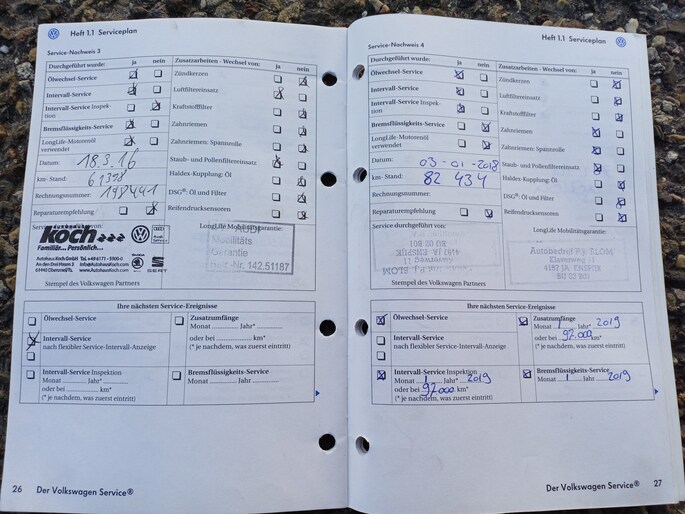 Heft 1.1 Serviceplan
Service-Nachweis 3
Durchgeführt wurde: ja nein
Ölwechsel-Service
Intervall-Service
Intervall-Service Inspek-
tion
Bremsflüssigkeits-Service
LongLife-Motorenöl
verwendet
Datum: 18.3.16
km-Stand: 61378
Rechnungsnummer: 198491
Reparaturempfehlung
Zusatzarbeiten - Wechsel von: ja nein
Zündkerzen
Luftfiltereinsatz
Kraftstofffilter
Zahnriemen
Zahnriemen: Spannrolle
Staub- und Pollenfiltereinsatz
Haldex-Kupplung: Öl
DSG®: Öl und Filter
Reifendrucksensoren
autohaus
Koch
Familiär... Persönlich...
Autohaus Koch GmbH
www.AutohausKoch.com
SEAT
LongLife Mobilitätsgarantie:
Mobilitäts
Garantie
142.51187
Stempel des Volkswagen Partners
Ihre nächsten Service-Ereignisse
Ölwechsel-Service
Intervall-Service
nach flexibler Service-Intervall-Anzeige
Intervall-Service Inspektion
Monat Jahr*
oder bei km*
(* je nachdem, was zuerst eintritt)
Zusatzumfänge
Monat Jahr*
oder bei km*
(* je nachdem, was zuerst eintritt)
Bremsflüssigkeits-Service
Monat Jahr
26 Der Volkswagen Service®
Heft 1.1 Serviceplan
Service-Nachweis 4
Durchgeführt wurde: ja nein
Ölwechsel-Service
Intervall-Service
Intervall-Service Inspek-
tion
Bremsflüssigkeits-Service
LongLife-Motorenöl
verwendet
Datum: 03-01-2018
km-Stand: 82 434
Rechnungsnummer:
Reparaturempfehlung
Service durchgeführt von:
Zusatzarbeiten - Wechsel von: ja nein
Zündkerzen
Luftfiltereinsatz
Kraftstofffilter
Zahnriemen
Zahnriemen: Spannrolle
Staub- und Pollenfiltereinsatz
Haldex-Kupplung: Öl
DSG®: Öl und Filter
Reifendrucksensoren
LongLife Mobilitätsgarantie:
Autobedrijf P.J. BLOM
Stempel des Volkswagen Partners
Ihre nächsten Service-Ereignisse
Ölwechsel-Service
Intervall-Service
nach flexibler Service-Intervall-Anzeige
Intervall-Service Inspektion
Monat 1 Jahr* 2019
oder bei 92000 km*
(* je nachdem, was zuerst eintritt)
Zusatzumfänge
Monat 1 Jahr* 2019
oder bei 92.000 km*
(* je nachdem, was zuerst eintritt)
Bremsflüssigkeits-Service
Monat 1 Jahr 2019
Der Volkswagen Service® 27